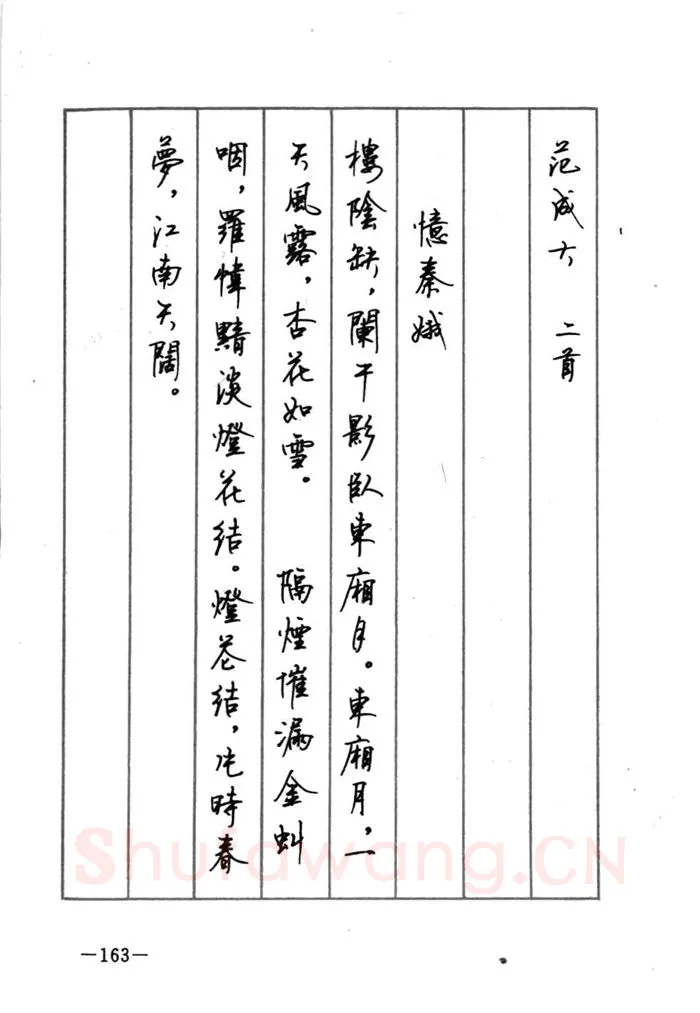 范成大 二首
憶秦娥
樓陰缺，闌干影臥東廂月。東廂月，一
天風露，杏花如雪。 隔煙催漏金虯
咽，羅幃黯淡燈花結。燈花結，片時春
夢，江南天闊。
Shufawang.CN
—163—